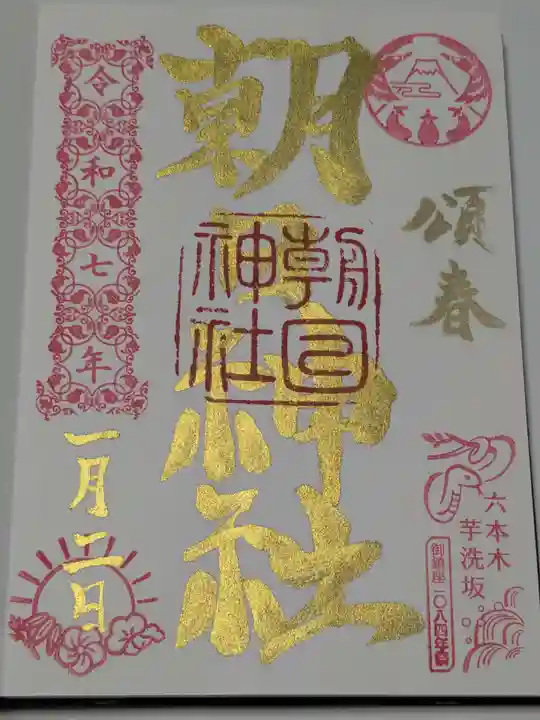 頌春
六本木
芋洗坂
御鎮座一〇八四年
朝日神社
朝日
神社
令和七年
一月二日